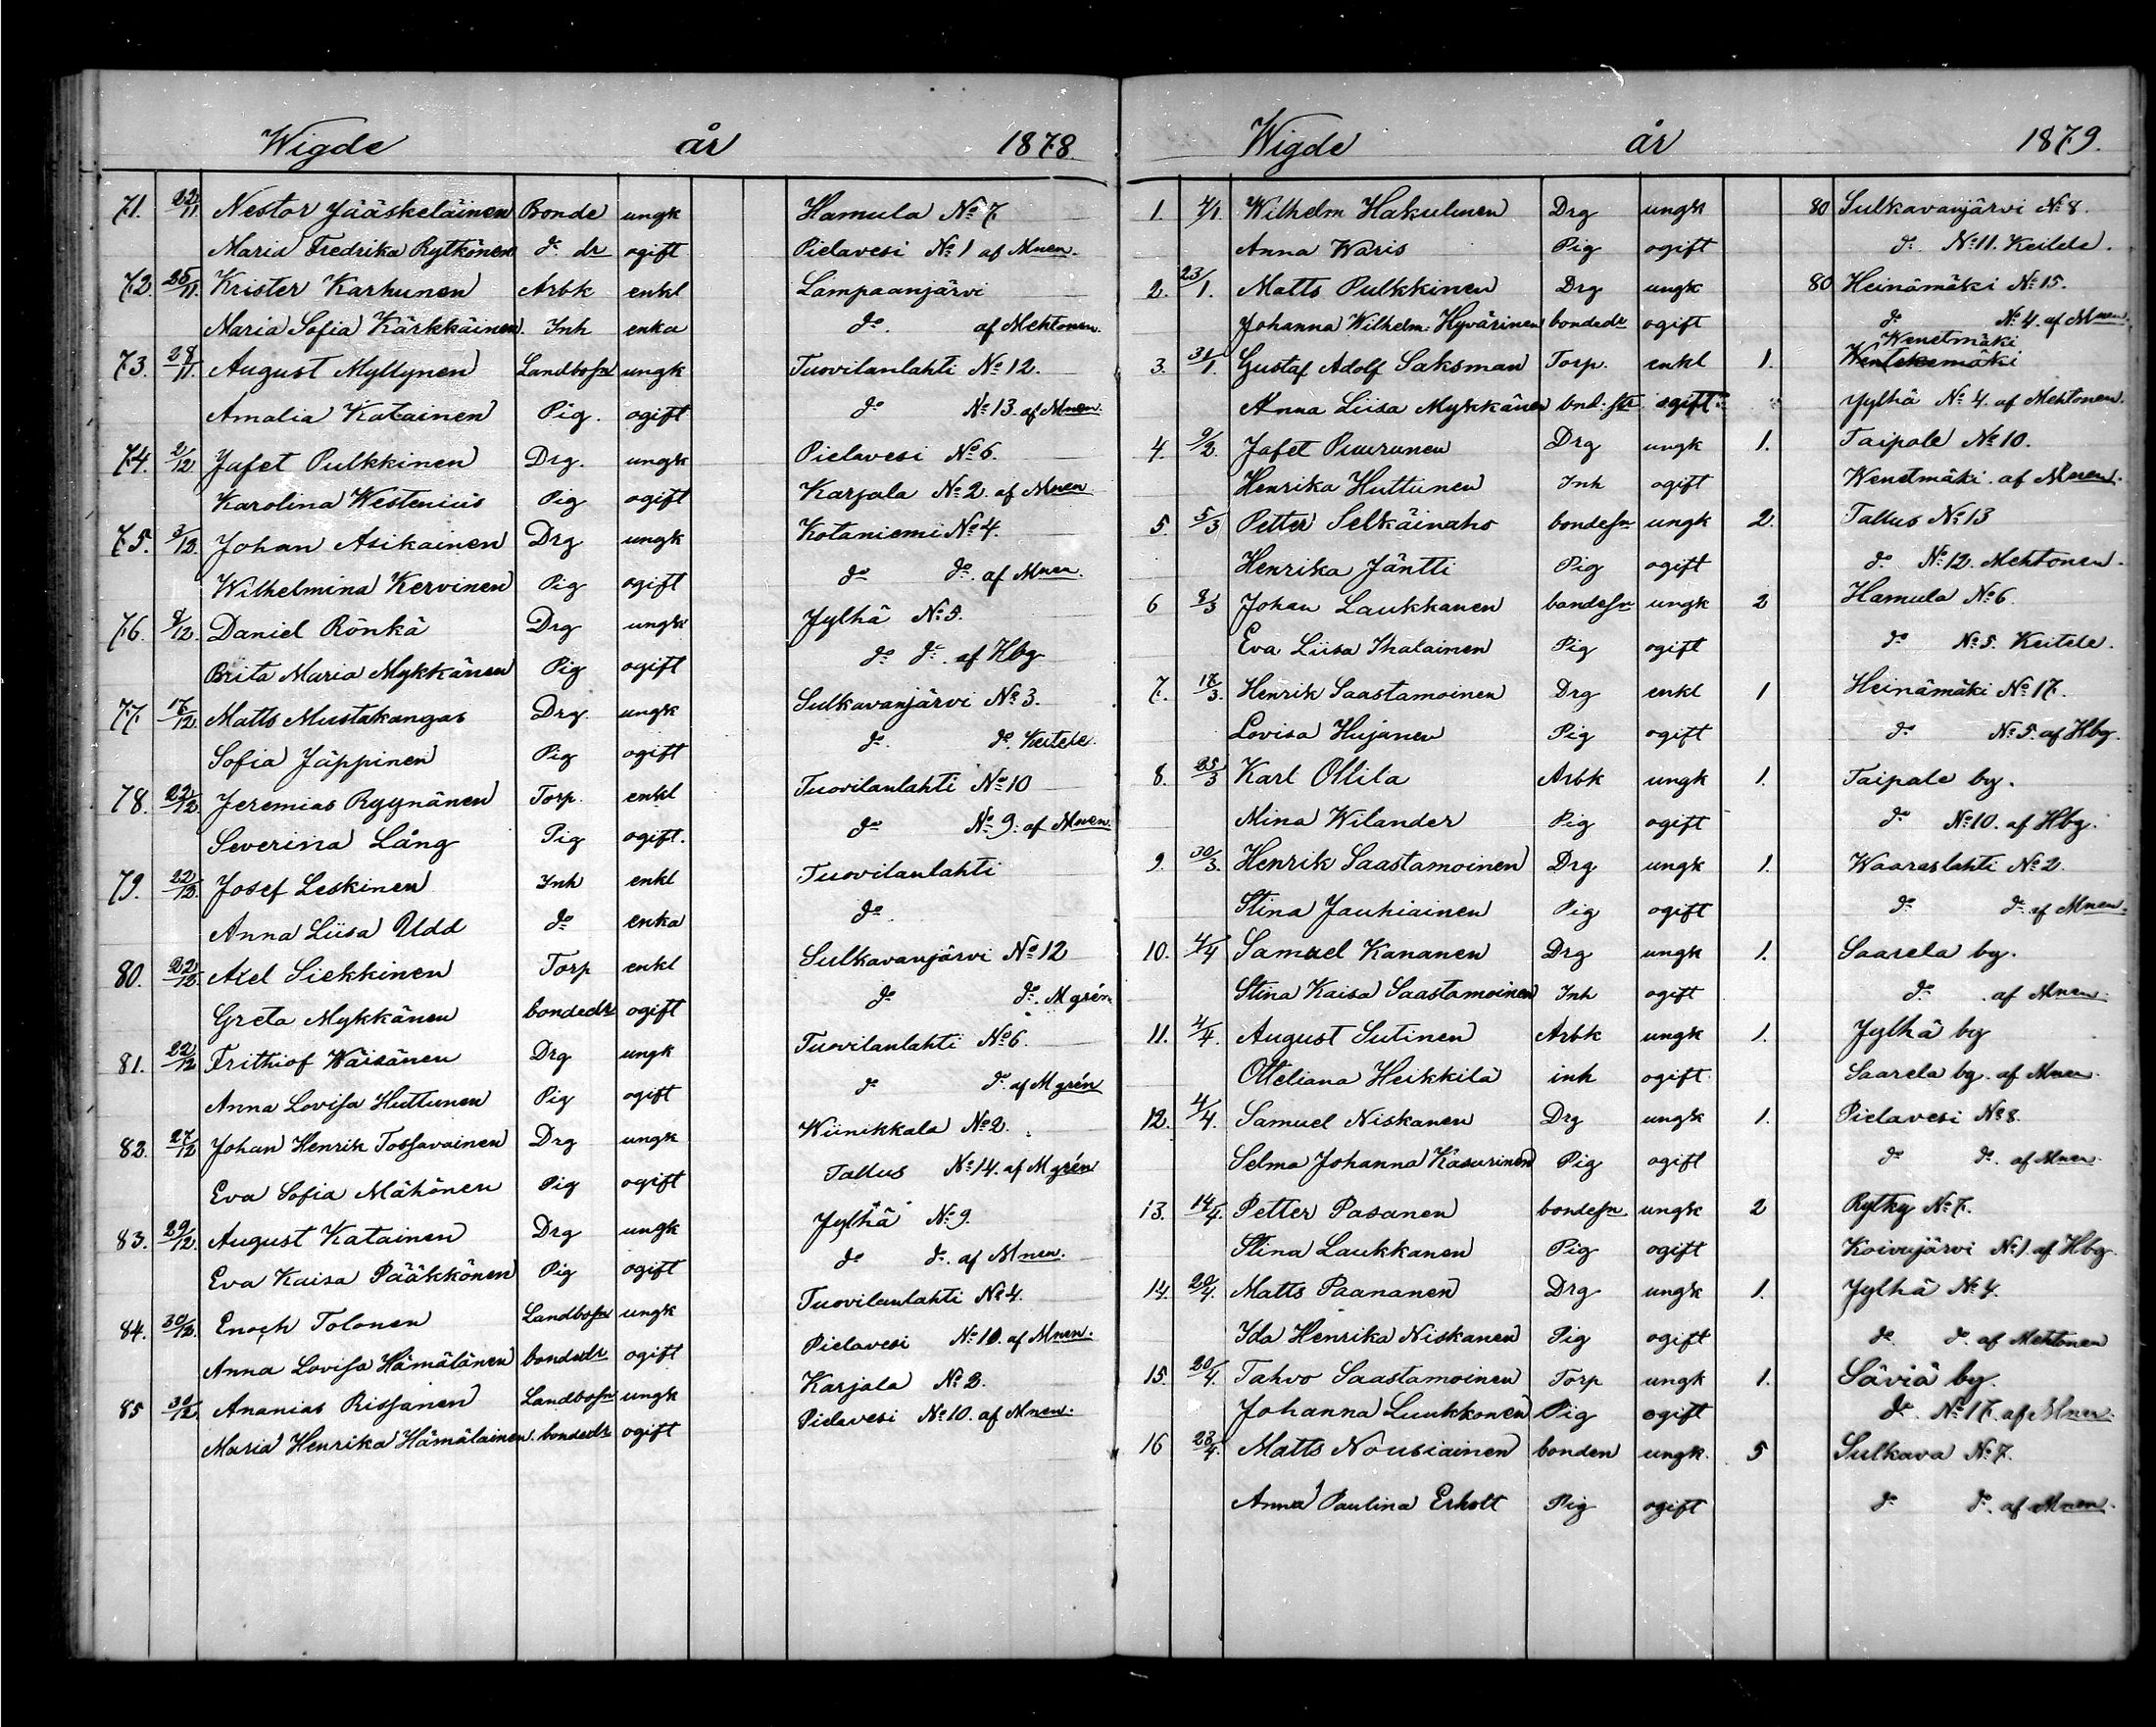 Wigde år 1878
71. 22/11 Nestor Jääskeläinen Bonde ungk Hamula No 7
Maria Fredrika Rytkönen do dr ogift Pielavesi No 1 af Mnen.
72. 25/11. Krister Karhunen Arbk enkl Lampaanjärvi
Maria Sofia Kärkkäinen Inh enka do. af Mehtonen.
73. 28/11. August Myllynen Landbosn ungk Tuovilanlahti No 12.
Amalia Katainen Pig. ogift do No 13. af Mnen.
74. 2/12 Jafet Pulkkinen Drg. ungk Pielavesi No 6.
Karolina Westenius Pig ogift Karjala No 2. af Mnen
75. 3/12. Johan Asikainen Drg ungk Kotaniemi No 4.
Wilhelmina Kervinen Pig ogift do do. af Mnen.
76. /12. Daniel Rönkä Drg ungk Jylhä No 5.
Brita Maria Mykkänen Pig ogift do do. af Hbg
77. 17/12. Matts Mustakangas Drg. ungk Sulkavanjärvi No 3.
Sofia Jäppinen Pig ogift do. do. Keitele.
78. 22/12 Jeremias Ryynänen Torp. enkl Tuovilanlahti No 10
Severina Lång Pig ogift. do No 9. af Mnen.
79. 22/12. Josef Leskinen Inh enkl Tuovilanlahti
Anna Liisa Udd do enka do.
80. 22/12. Axel Siekkinen Torp enkl Sulkavanjärvi No 12
Greta Mykkänen bondedr ogift do do. Mgrén
81. 22/12 Frithiof Wäisänen Drg ungk Tuovilanlahti No 6.
Anna Lovisa Huttunen Pig ogift do do. af Mgrén
82. 27/12 Johan Henrik Tossavainen Drg ungk Wiinikkala No 2.
Eva Sofia Mähönen Pig ogift Tallus No 14. af Mgrén
83. 29/12. August Katainen Drg ungk Jylhä No 9.
Eva Kaisa Pääkkönen Pig ogift do do. af Mnen.
84. 30/12. Enoch Tolonen Landbosn ungk Tuovilanlahti No 4.
Anna Lovisa Hämälänen bondedr ogift Pielavesi No 10. af Mnen.
85 30/12 Ananias Rissanen Landbosn ungk Karjala No 2.
Maria Henrika Hämälainen. bondedr ogift Pielavesi No 10. af Mnen.
Wigde år 1879.
1. 7/1. Wilhelm Hakulinen Drg ungk 80 Sulkavanjärvi No 8.
Anna Waris Pig ogift do. No 11. Keitele.
2. 23/1. Matts Pulkkinen Drg ungk 80 Heinämäki No 15.
Johanna Wilhelm. Hyvärinen bondedr ogift do No 4. af Mnen.
Wenetmäki
3. 31/1. Gustaf Adolf Saksman Torp. enkl 1.
Anna Liisa Mykkänen ogift Jylhä No 4. af Mehtonen.
4. 9/2. Jafet Puurunen Drg ungk 1. Taipale No 10.
Henrika Huttunen Inh ogift Wenetmäki. af Mnen.
5. 5/3 Petter Selkäinaho bondesn ungk 2. Tallus No 13
Henrika Jäntti Pig ogift do. No 12. Mehtonen.
6 8/3 Johan Laukkanen bondesn ungk 2 Hamula No 6.
Eva Liisa Ihalainen Pig ogift do No 5. Keitele.
7. 17/3. Henrik Saastamoinen Drg enkl 1 Heinämäki No 17.
Lovisa Hujanen Pig ogift do No 5. af Hbg.
8. 25/3 Karl Ollila Arbk ungk 1. Taipale by.
Mina Wilander Pig ogift do No 10. af Hbg.
9. 30/3. Henrik Saastamoinen Drg ungk 1. Waaraslahti No 2.
Stina Jauhiainen Pig ogift do do. af Mnen.
10. 4/4 Samuel Kananen Drg ungk 1. Saarela by.
Stina Kaisa Saastamoinen Inh ogift do. af Mnen.
11. 4/4. August Sutinen Arbk ungk 1. Jylhä by
Otteliana Heikkilä inh ogift Saarela by. af Mnen.
12. 4/4. Samuel Niskanen Drg ungk 1. Pielavesi No 8.
Selma Johanna Kasurinen Pig ogift do do. af Mnen.
13. 14/4. Petter Pasanen bondesn ungk 2 Rytky No 7.
Stina Laukkanen Pig ogift Koivujärvi No 1 af Hbg.
14. 20/4. Matts Paananen Drg ungk 1. Jylhä No 4.
Ida Henrika Niskanen Pig ogift do do. af Mehtonen
15. 20/4. Tahvo Saastamoinen Torp ungk 1. Säviä by.
Johanna Luukkonen Pig ogift do. No 17. af Mnen.
16 23/4. Matts Nousiainen bonden ungk. 5 Sulkava No 7.
Anna Paulina Erholt Pig ogift do do. af Mnen.